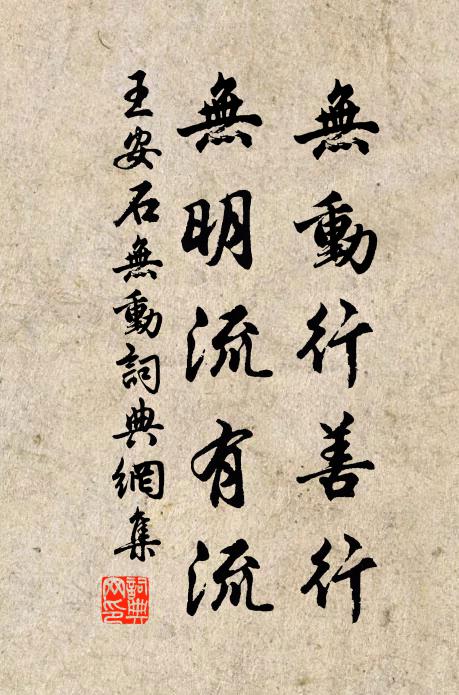 無動行善行
無明流有流
王安石無動詞典網集
詞典网印